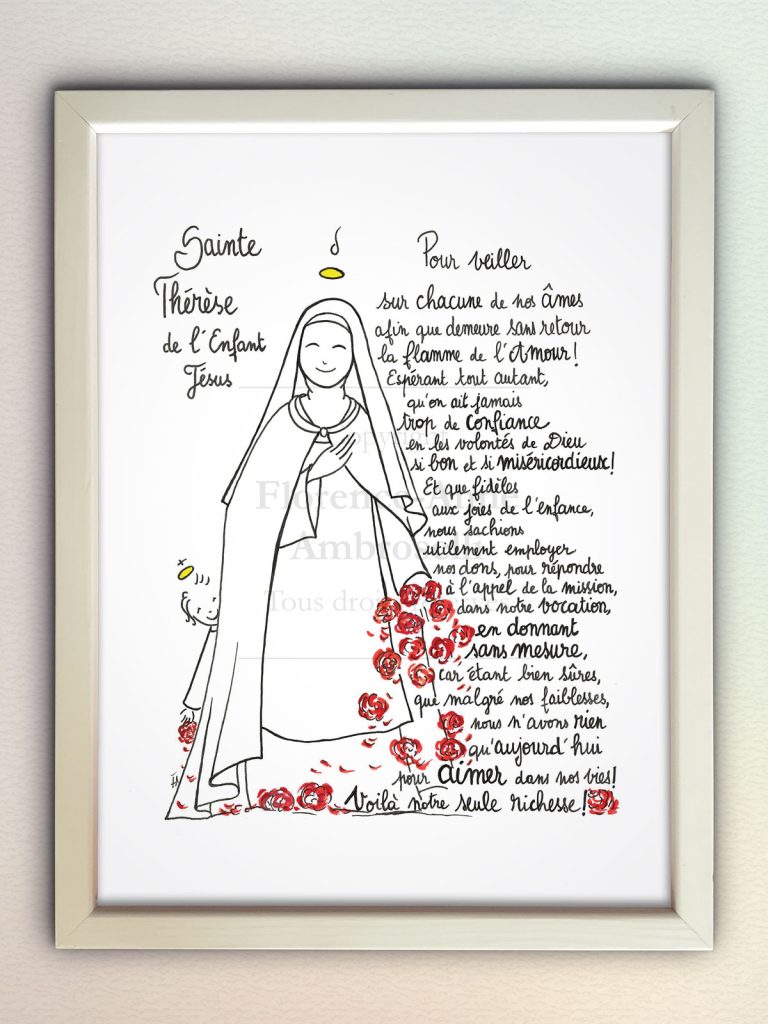 Sainte
Thérèse
de l'Enfant
Jésus
Pour veiller
sur chacune de nos âmes
afin que demeure sans retour
la flamme de l'Amour!
Espérant tout autant,
qu'on ait jamais
trop de confiance
en les volontés de Dieu
si bon et si miséricordieux!
Et que fidèles
aux joies de l'enfance,
nous sachions
utilement employer
nos dons, pour répondre
à l'appel de la mission,
dans notre vocation,
en donnant
sans mesure,
car étant bien sûres,
que malgré nos faiblesses,
nous n'avons rien
qu'aujourd'hui
pour aimer dans nos vies!
Voilà notre seule richesse!
Florence-Anne
Ambroselli
Tous droits